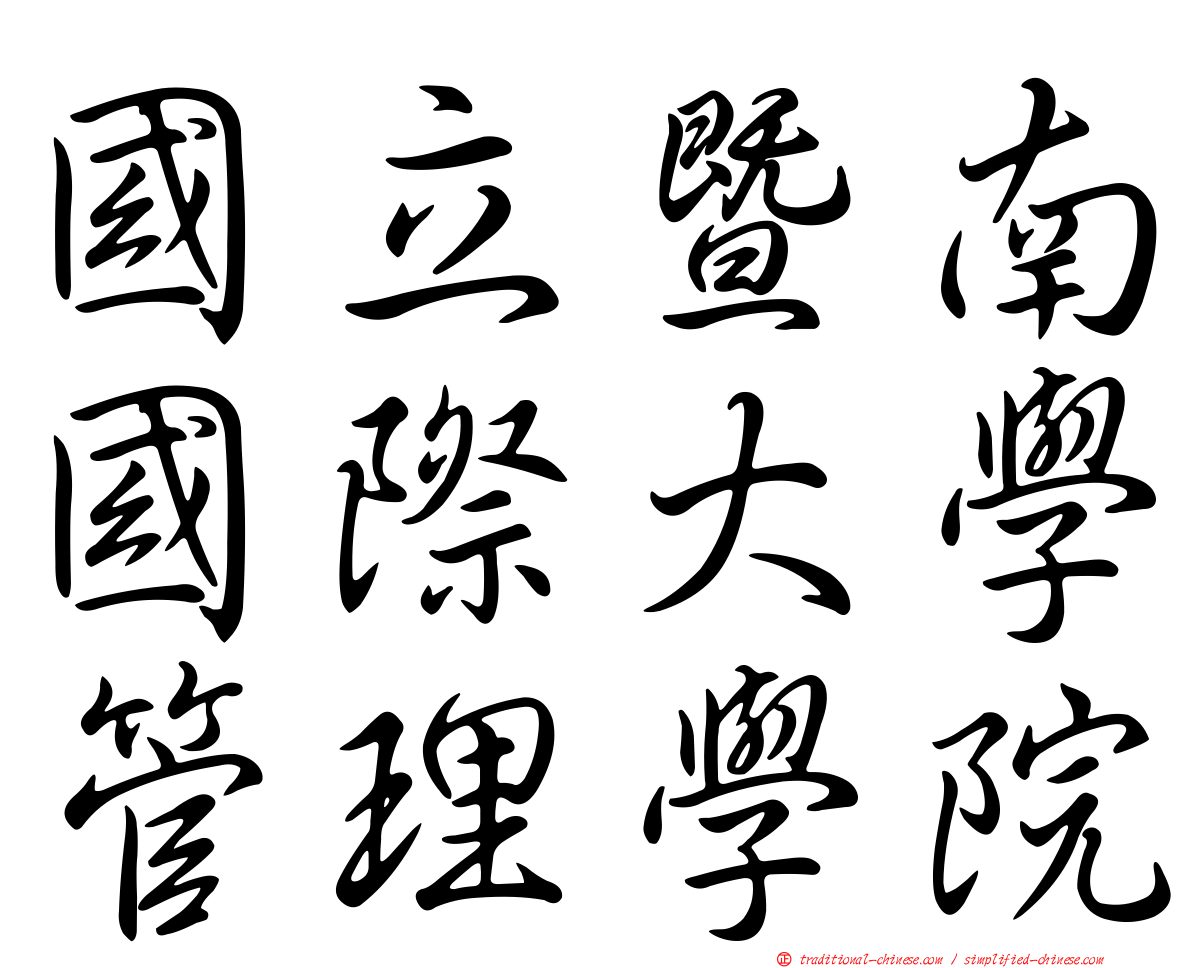 國立暨南
國際大學
管理學院
正 traditional-chinese.com / simplified-chinese.com